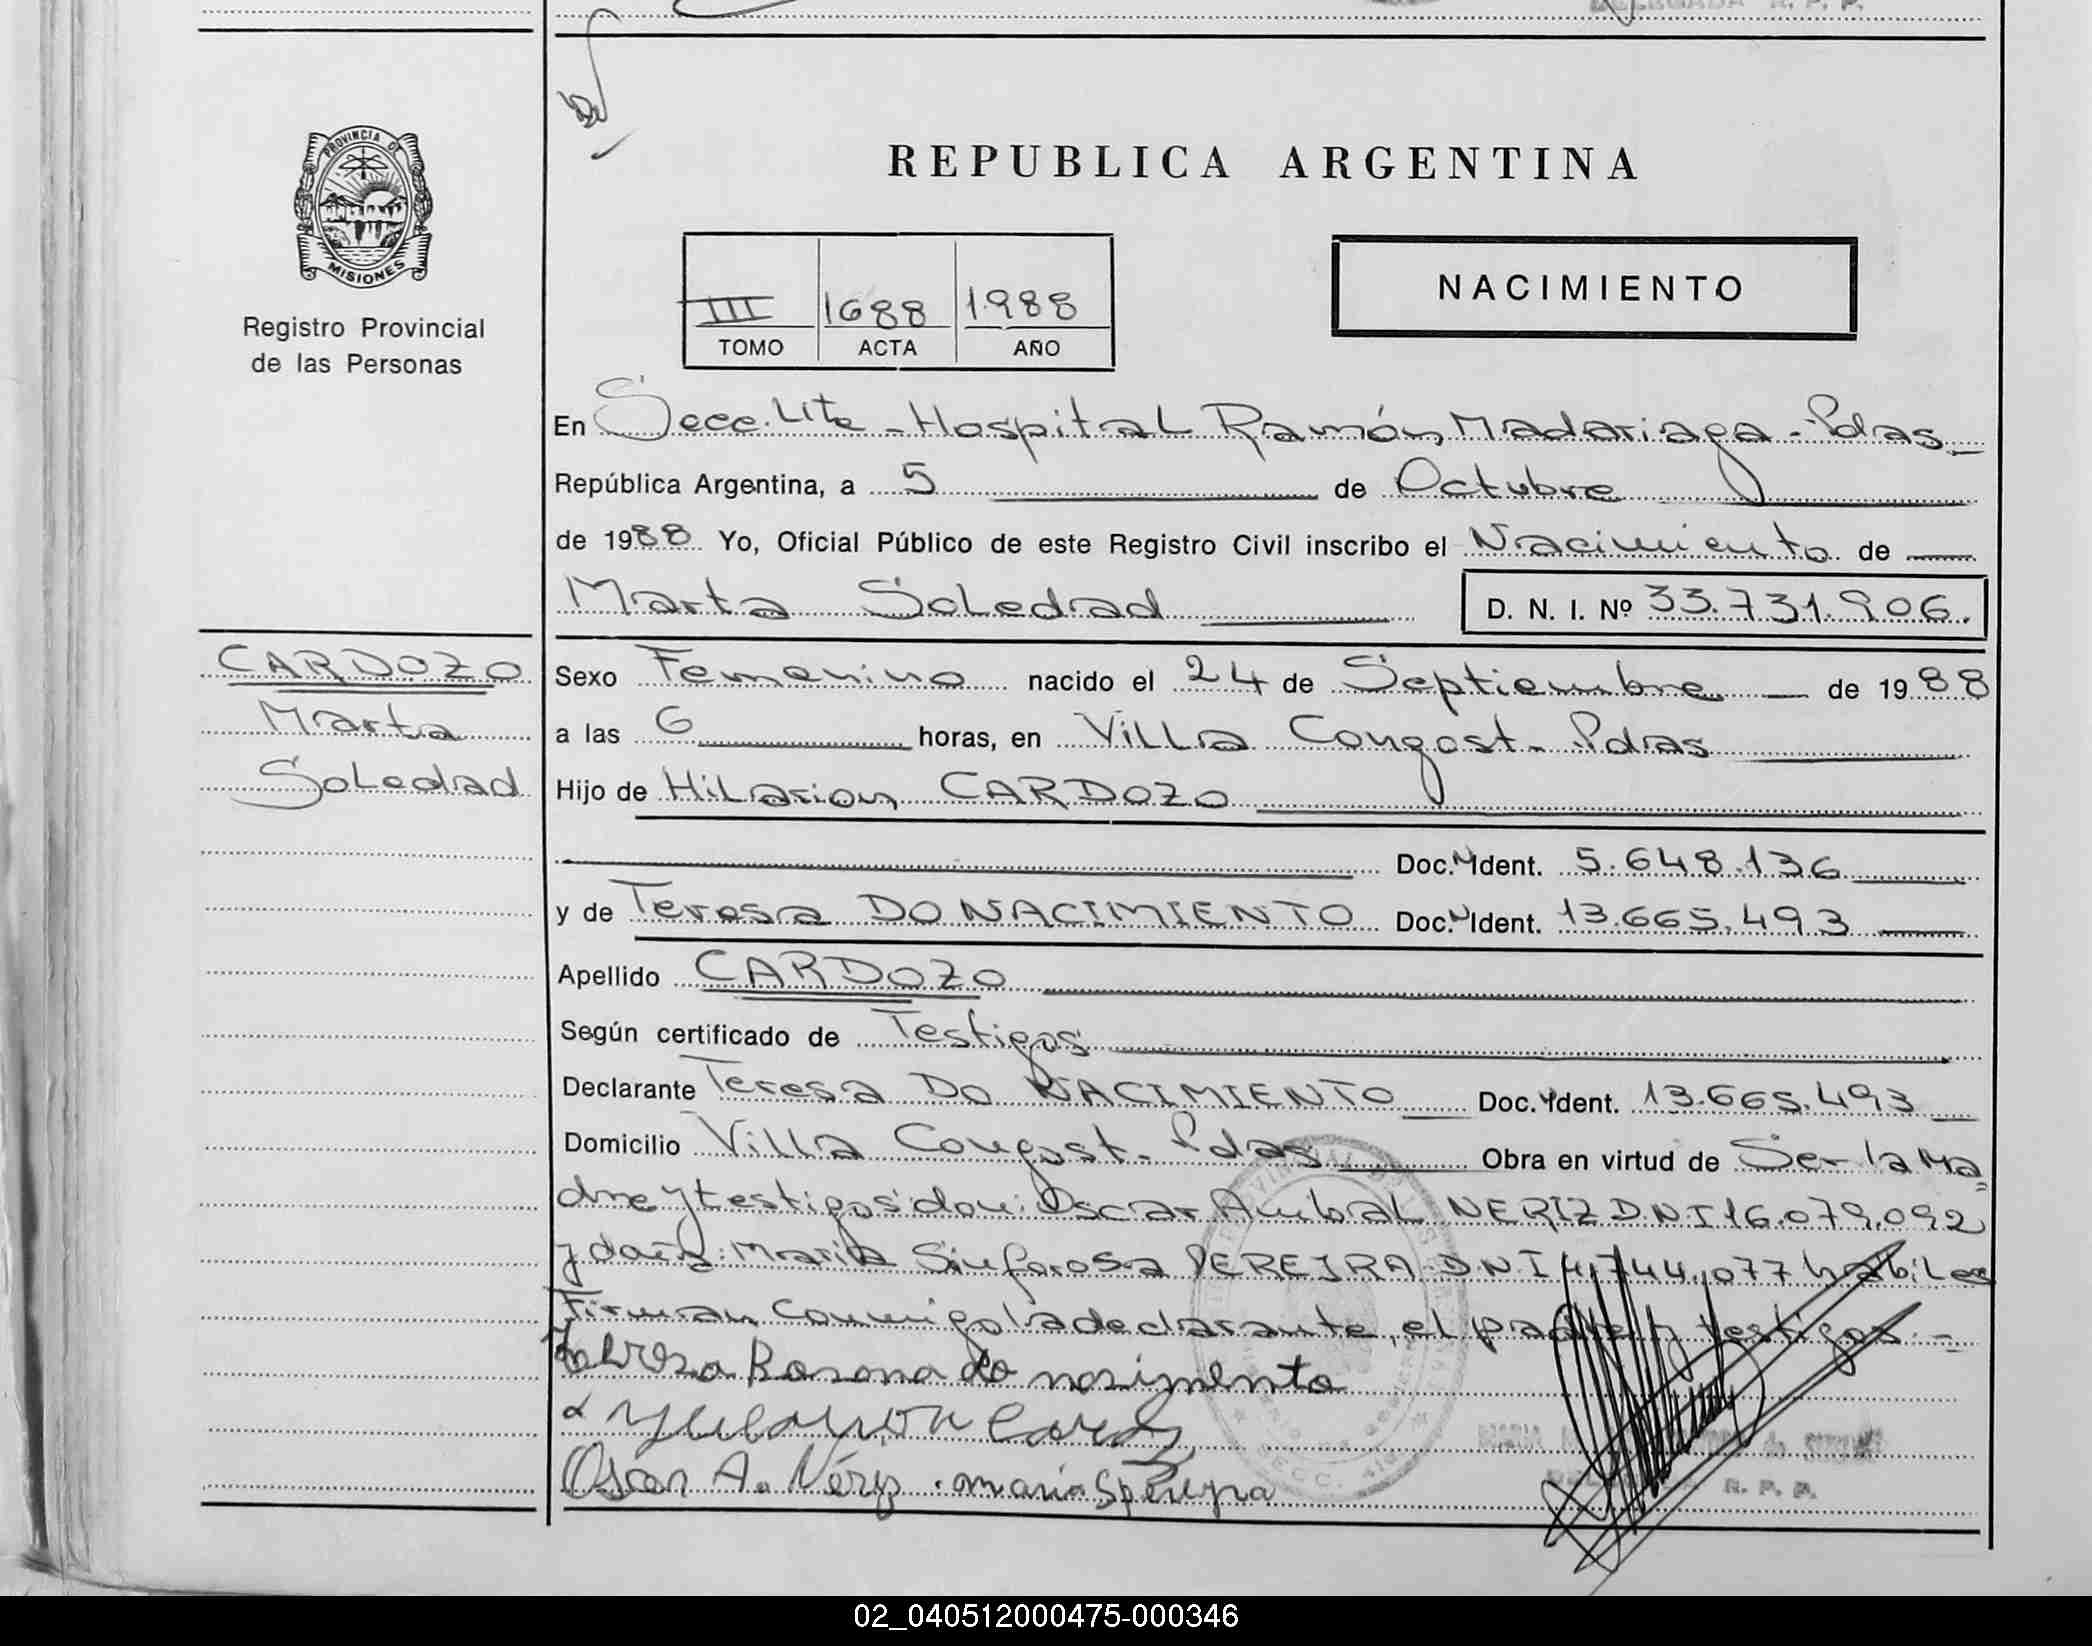 PROVINCIA DE
MISIONES
Registro Provincial
de las Personas
REPUBLICA ARGENTINA
III 1688 1988
TOMO ACTA AÑO
NACIMIENTO
En Secc. Uta - Hospital Ramón Madariaga - Pdas
República Argentina, a 5 de Octubre
de 1988 Yo, Oficial Público de este Registro Civil inscribo el Nacimiento de
Marta Soledad D. N. I. Nº 33.731.906.
CARDOZO
Marta
Soledad
Sexo Femenino nacido el 24 de Septiembre de 1988
a las 6 horas, en Villa Congost - Pdas
Hijo de Hilarion CARDOZO
Doc. Ident. 5.648.136
y de Teresa DO NACIMIENTO Doc. Ident. 13.665.493
Apellido CARDOZO
Según certificado de Testigos
Declarante Teresa DO NACIMIENTO Doc. Ident. 13.665.493
Domicilio Villa Congost - Pdas Obra en virtud de Ser la Ma=
dre y testigos don: Oscar Anibal NERIZ DNI 16.079.092
y doña: Maria Sinforosa PEREIRA DNI 4.744.077 habiles
Firman conmigo la declarante, el padre y testigos -
Teresa Ramona do nasimento
Oscar A. Nériz . maria S pereyra
R. P. P.
02_040512000475-000346